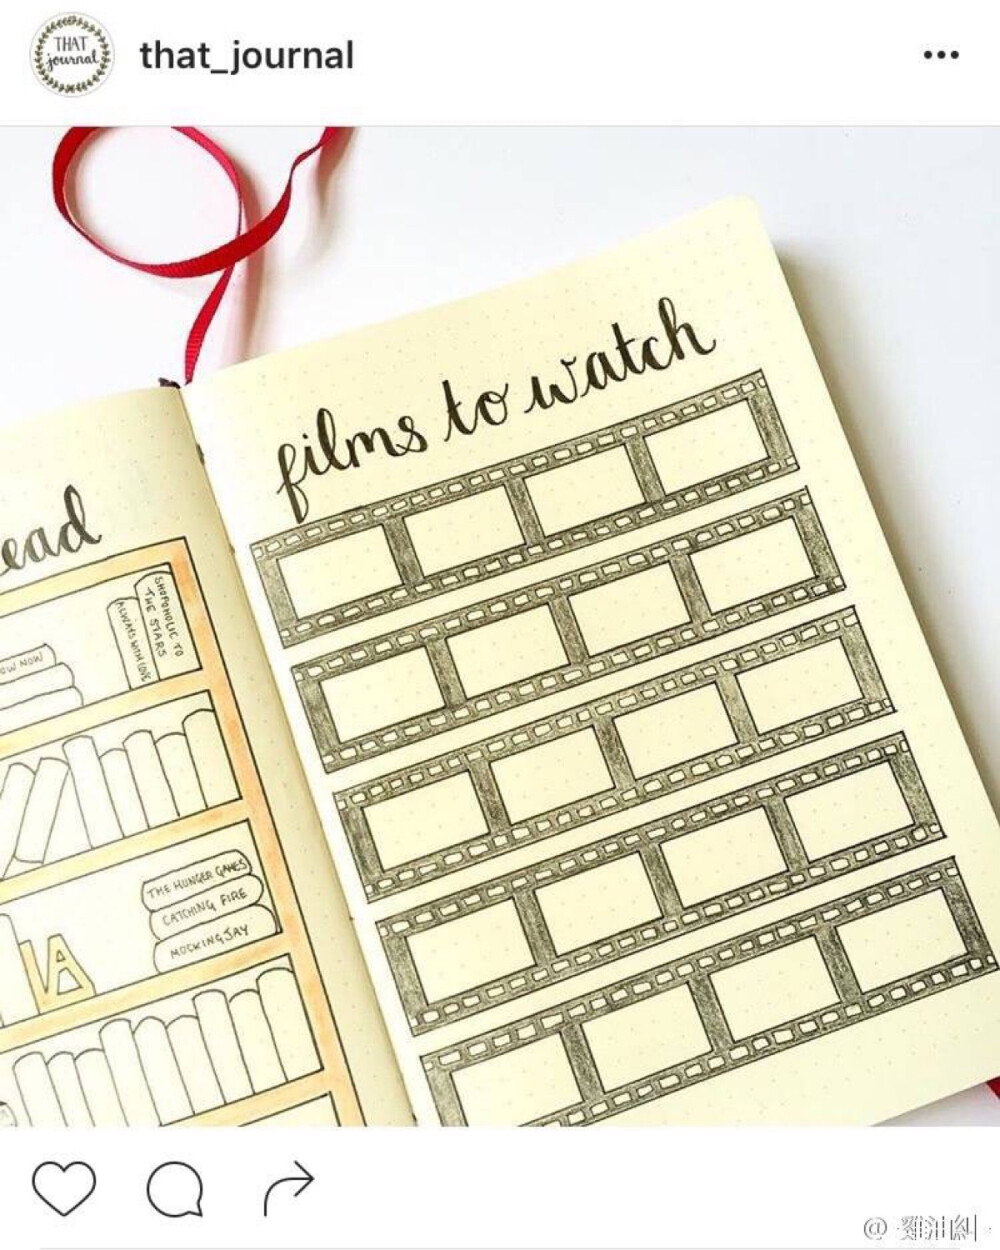 THAT
journal
that_journal
films to watch
ead
SHOPOHOLIC TO
THE STARS
ALWAYS WITH LOVE
OW NOW
THE HUNGER GAMES
CATCHING FIRE
MOCKINGJAY
@